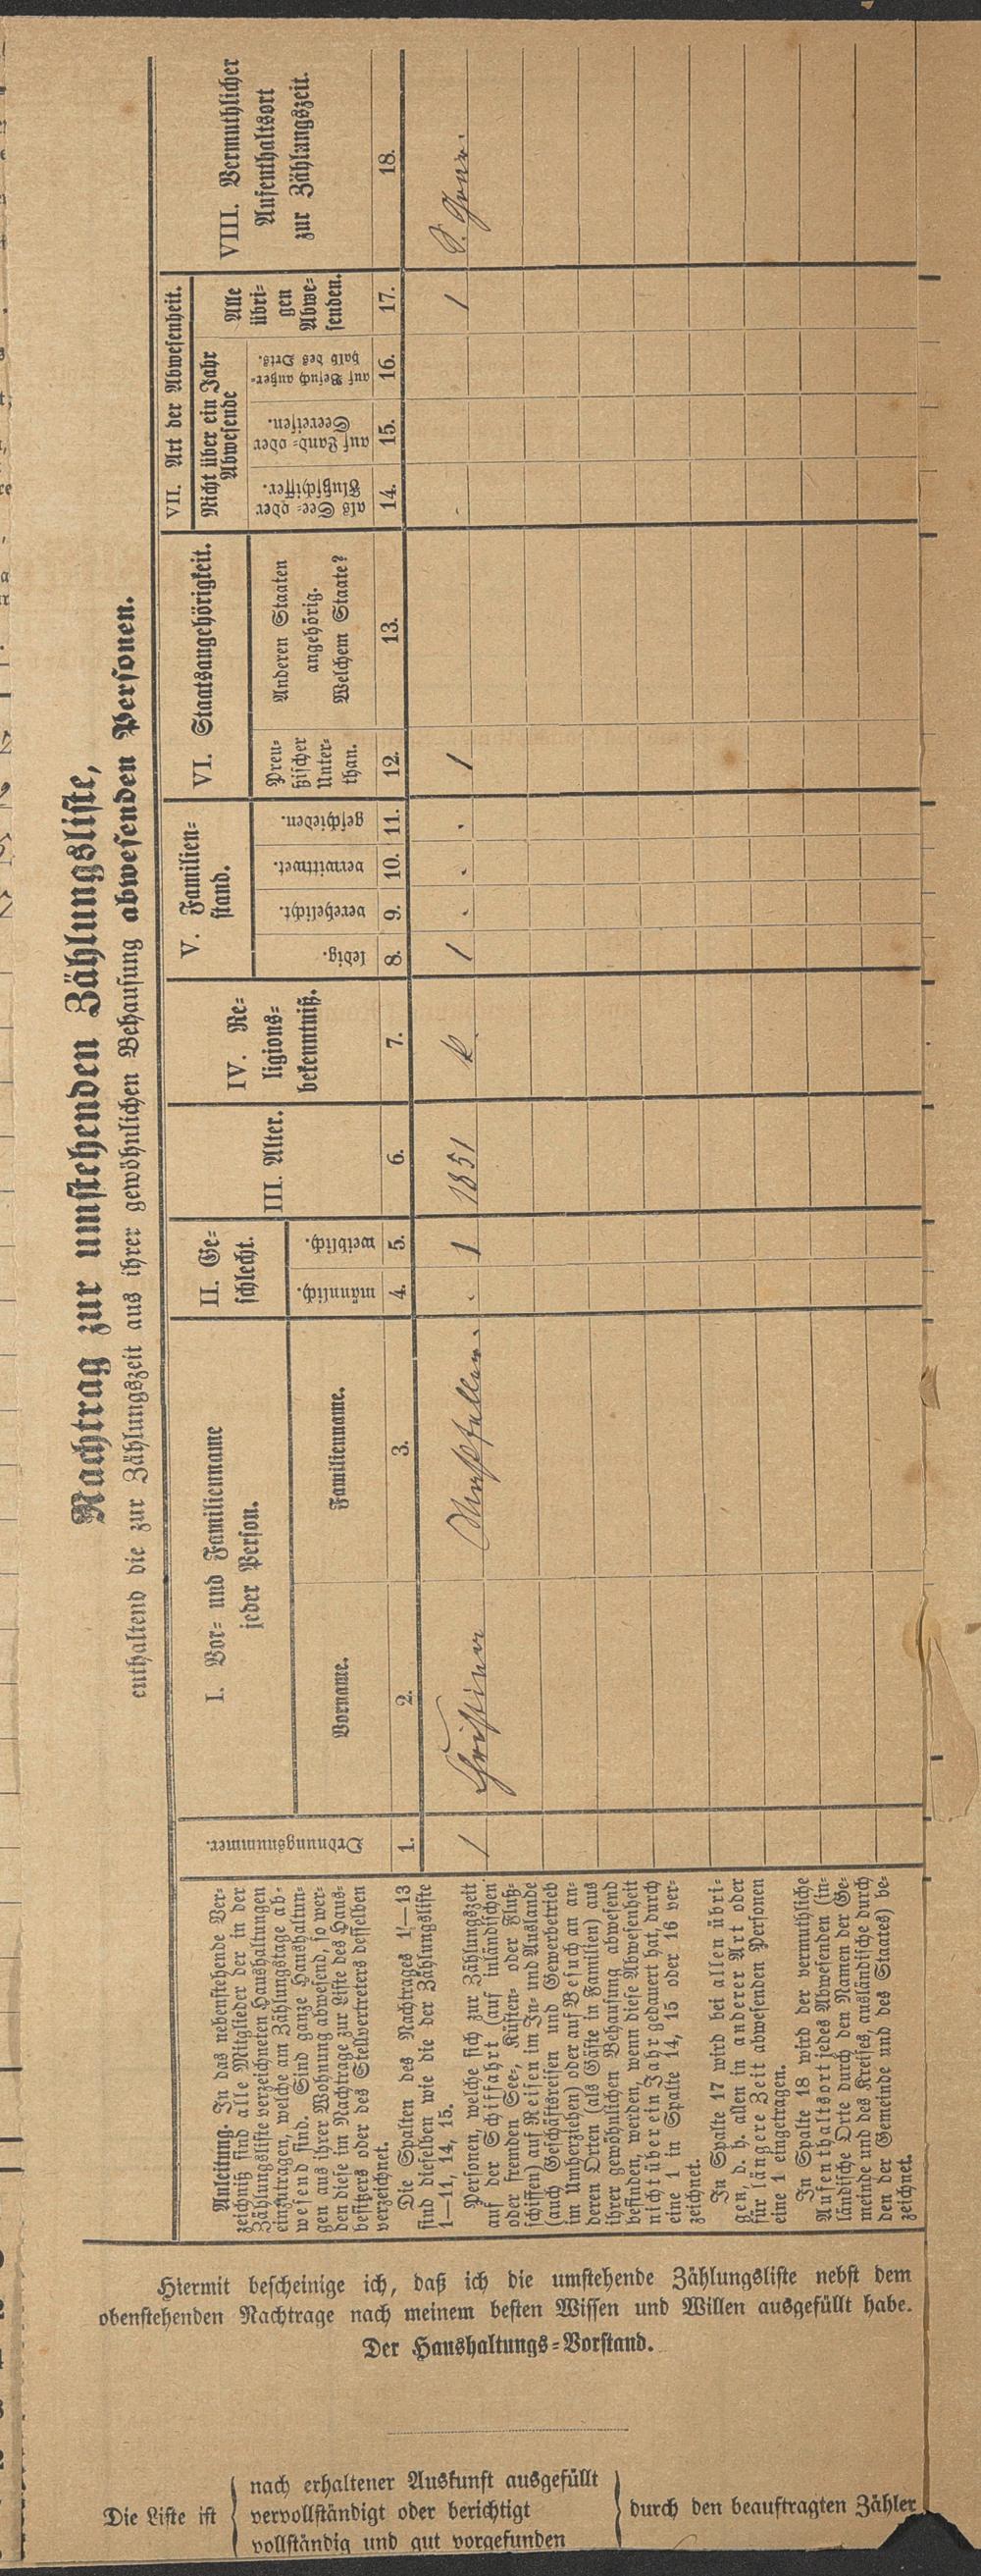 Nachtrag zur umstehenden Zählungsliste,
enthaltend die zur Zählungszeit aus ihrer gewöhnlichen Behausung abwesenden Personen.
Anleitung. In das nebenstehende Ver-
zeichniß sind alle Mitglieder der in der
Zählungsliste verzeichneten Haushaltungen
einzutragen, welche am Zählungstage ab-
wesend sind. Sind ganze Haushaltun-
gen aus ihrer Wohnung abwesend, so wer-
den diese im Nachtrage zur Liste des Haus-
besitzers oder des Stellvertreters desselben
verzeichnet.
Die Spalten des Nachtrages 1—13
sind dieselben wie die der Zählungsliste
1—11, 14, 15.
Personen, welche sich zur Zählungszeit
auf der Schiffahrt (auf inländischen
oder fremden See-, Küsten- oder Fluß-
schiffen) auf Reisen im In- und Auslande
(auch Geschäftsreisen und Gewerbetrieb
im Umherziehen) oder auf Besuch an an-
deren Orten (als Gäste in Familien) aus
ihrer gewöhnlichen Behausung abwesend
befinden, werden, wenn diese Abwesenheit
nicht über ein Jahr gedauert hat, durch
eine 1 in Spalte 14, 15 oder 16 ver-
zeichnet.
In Spalte 17 wird bei allen übri-
gen, d. h. allen in anderer Art oder
für längere Zeit abwesenden Personen
eine 1 eingetragen.
In Spalte 18 wird der vermuthliche
Aufenthaltsort jedes Abwesenden (in-
ländische Orte durch den Namen der Ge-
meinde und des Kreises, ausländische durch
den der Gemeinde und des Staates) be-
zeichnet.
Ordnungsnummer.
1.
I. Vor- und Familienname
jeder Person.
Vorname.
2.
Familienname.
3.
II. Ge-
schlecht.
männlich.
4.
weiblich.
5.
III. Alter.
6.
IV. Re-
ligions-
bekenntniß.
7.
V. Familien-
stand.
ledig.
8.
verehelicht.
9.
verwittwet.
10.
geschieden.
11.
VI. Staatsangehörigkeit.
Preu-
ßischer
Unter-
than.
12.
Anderen Staaten
angehörig.
Welchem Staate?
13.
VII. Art der Abwesenheit.
Nicht über ein Jahr
Abwesende
als See- oder
Flußschiffer.
14.
auf Land- oder
Seereisen.
15.
auf Besuch außer-
halb des Orts.
16.
Alle
übri-
gen
Abwe-
senden.
17.
VIII. Vermuthlicher
Aufenthaltsort
zur Zählungszeit.
18.
1 Christine . 1 1851 k. 1 . . . 1 . 1
Hiermit bescheinige ich, daß ich die umstehende Zählungsliste nebst dem
obenstehenden Nachtrage nach meinem besten Wissen und Willen ausgefüllt habe.
Der Haushaltungs-Vorstand.
Die Liste ist
nach erhaltener Auskunft ausgefüllt
vervollständigt oder berichtigt
vollständig und gut vorgefunden
durch den beauftragten Zähler